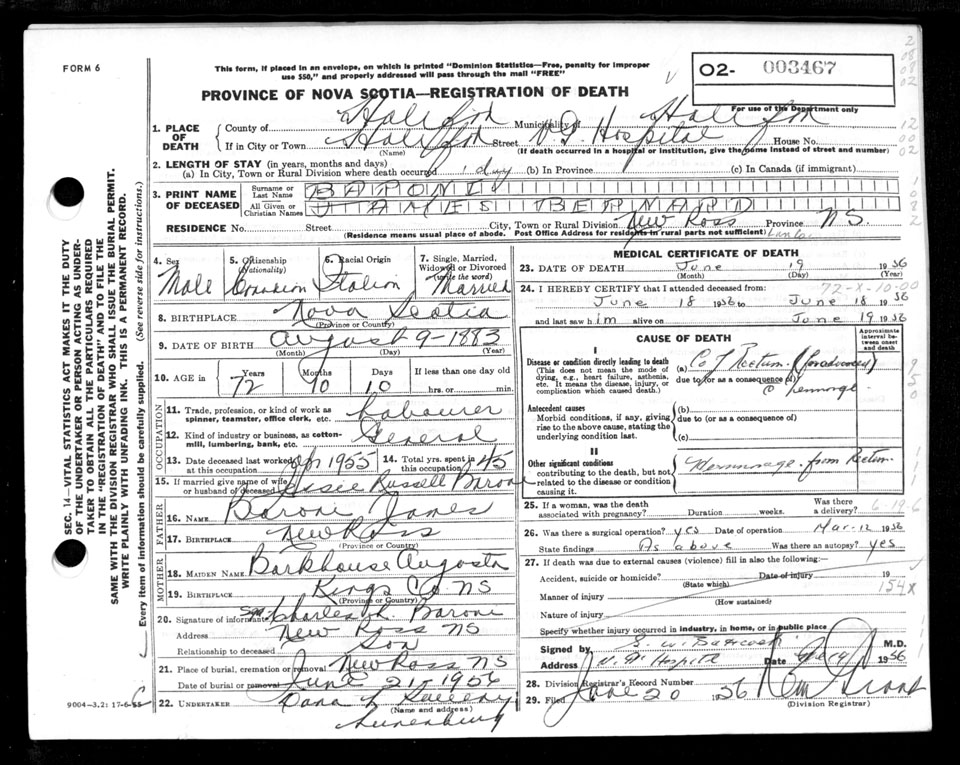 FORM 6
This form, if placed in an envelope, on which is printed "Dominion Statistics—Free, penalty for improper
use $50," and properly addressed will pass through the mail "FREE"
O2- 003467
PROVINCE OF NOVA SCOTIA—REGISTRATION OF DEATH
For use of the Department only
1. PLACE OF DEATH
County of Halifax Municipality Halifax
If in City or Town Halifax Street V G Hospital House No.
(Name) (If death occurred in a hospital or institution, give the name instead of street and number)
2. LENGTH OF STAY (in years, months and days)
(a) In City, Town or Rural Division where death occurred 1 day (b) In Province (c) In Canada (if immigrant)
3. PRINT NAME OF DECEASED
Surname or Last Name BARONE
All Given or Christian Names JAMES BERNARD
RESIDENCE No. Street City, Town or Rural Division New Ross Province N.S.
(Residence means usual place of abode. Post Office Address for residents in rural parts not sufficient)
4. Sex Male
5. Citizenship (Nationality) Canadian
6. Racial Origin Italian
7. Single, Married, Widowed or Divorced (write the word) Married
8. BIRTHPLACE Nova Scotia
(Province or Country)
9. DATE OF BIRTH August 9-1883
(Month) (Day) (Year)
10. AGE in 72 Years 10 Months 10 Days If less than one day hrs. or min.
OCCUPATION
11. Trade, profession, or kind of work as spinner, teamster, office clerk, etc. Labourer
12. Kind of industry or business, as cotton-mill, lumbering, bank, etc. General
13. Date deceased last worked at this occupation 1955 14. Total yrs. spent in this occupation 45
15. If married give name of wife or husband of deceased Russell Barone
FATHER
16. NAME Barone James
17. BIRTHPLACE New Ross
(Province or Country)
MOTHER
18. MAIDEN NAME Barkhouse Augusta
19. BIRTHPLACE Kings Co NS
(Province or Country)
20. Signature of informant Charles Barone
Address New Ross NS
Relationship to deceased Son
21. Place of burial, cremation or removal New Ross NS
Date of burial or removal June 21-1956
22. UNDERTAKER Dana
(Name and address)
Lunenburg
9004-3.2: 17-6-55
MEDICAL CERTIFICATE OF DEATH
23. DATE OF DEATH June 19 1956
(Month) (Day) (Year)
72-X-10-00
24. I HEREBY CERTIFY that I attended deceased from:
June 18 1956 to June 18 1956
and last saw him alive on June 19 1956
CAUSE OF DEATH
Approximate interval between onset and death
I
Disease or condition directly leading to death
(This does not mean the mode of dying, e.g., heart failure, asthenia, etc. It means the disease, injury, or complication which caused death.)
(a) Ca of Rectum. (for advanced)
due to (or as a consequence of)
Antecedent causes
Morbid conditions, if any, giving rise to the above cause, stating the underlying condition last.
(b)
due to (or as a consequence of)
(c)
II
Other significant conditions contributing to the death, but not related to the disease or condition causing it.
from Rectum
25. If a woman, was the death associated with pregnancy? Duration weeks. Was there a delivery?
26. Was there a surgical operation? yes Date of operation Mar-12 1956
State findings As above Was there an autopsy? yes
27. If death was due to external causes (violence) fill in also the following:
Accident, suicide or homicide? Date of injury 19
(State which)
154X
Manner of injury
(How sustained)
Nature of injury
Specify whether injury occurred in industry, in home, or in public place
Signed by M.D.
Address V. G. Hospital Date 1956
28. Division Registrar's Record Number
29. Filed June 20 1956
(Division Registrar)
SEC. 14—VITAL STATISTICS ACT MAKES IT THE DUTY
OF THE UNDERTAKER OR PERSON ACTING AS UNDER-
TAKER TO OBTAIN ALL THE PARTICULARS REQUIRED
IN THE "REGISTRATION OF DEATH" AND TO FILE THE
SAME WITH THE DIVISION REGISTRAR WHO SHALL ISSUE THE BURIAL PERMIT.
WRITE PLAINLY WITH UNFADING INK. THIS IS A PERMANENT RECORD.
Every item of information should be carefully supplied. (See reverse side for instructions.)